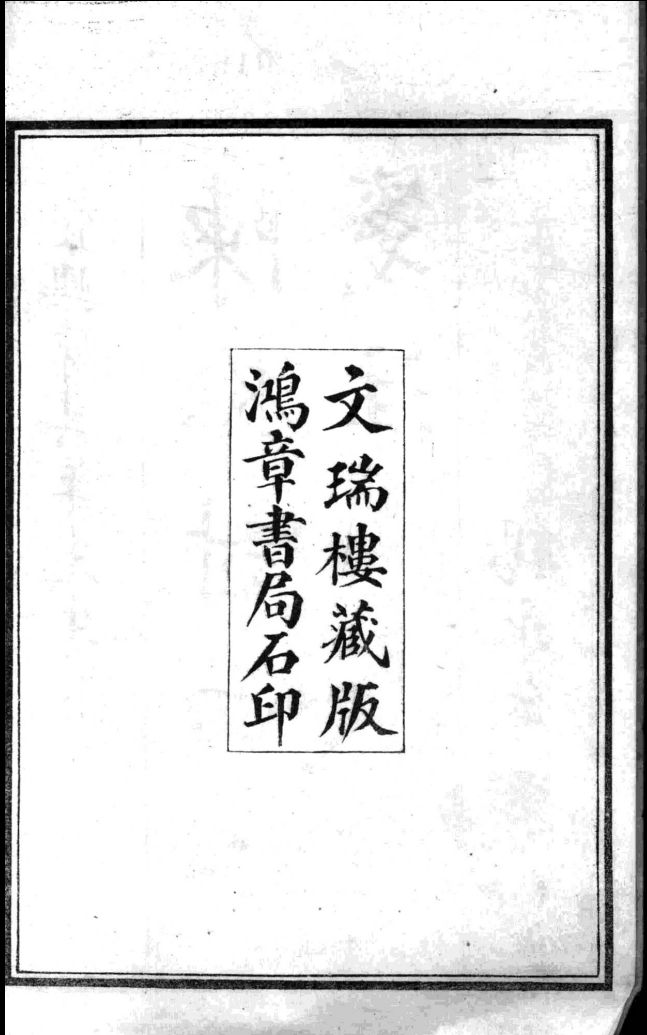 文瑞樓藏版
鴻章書局石印